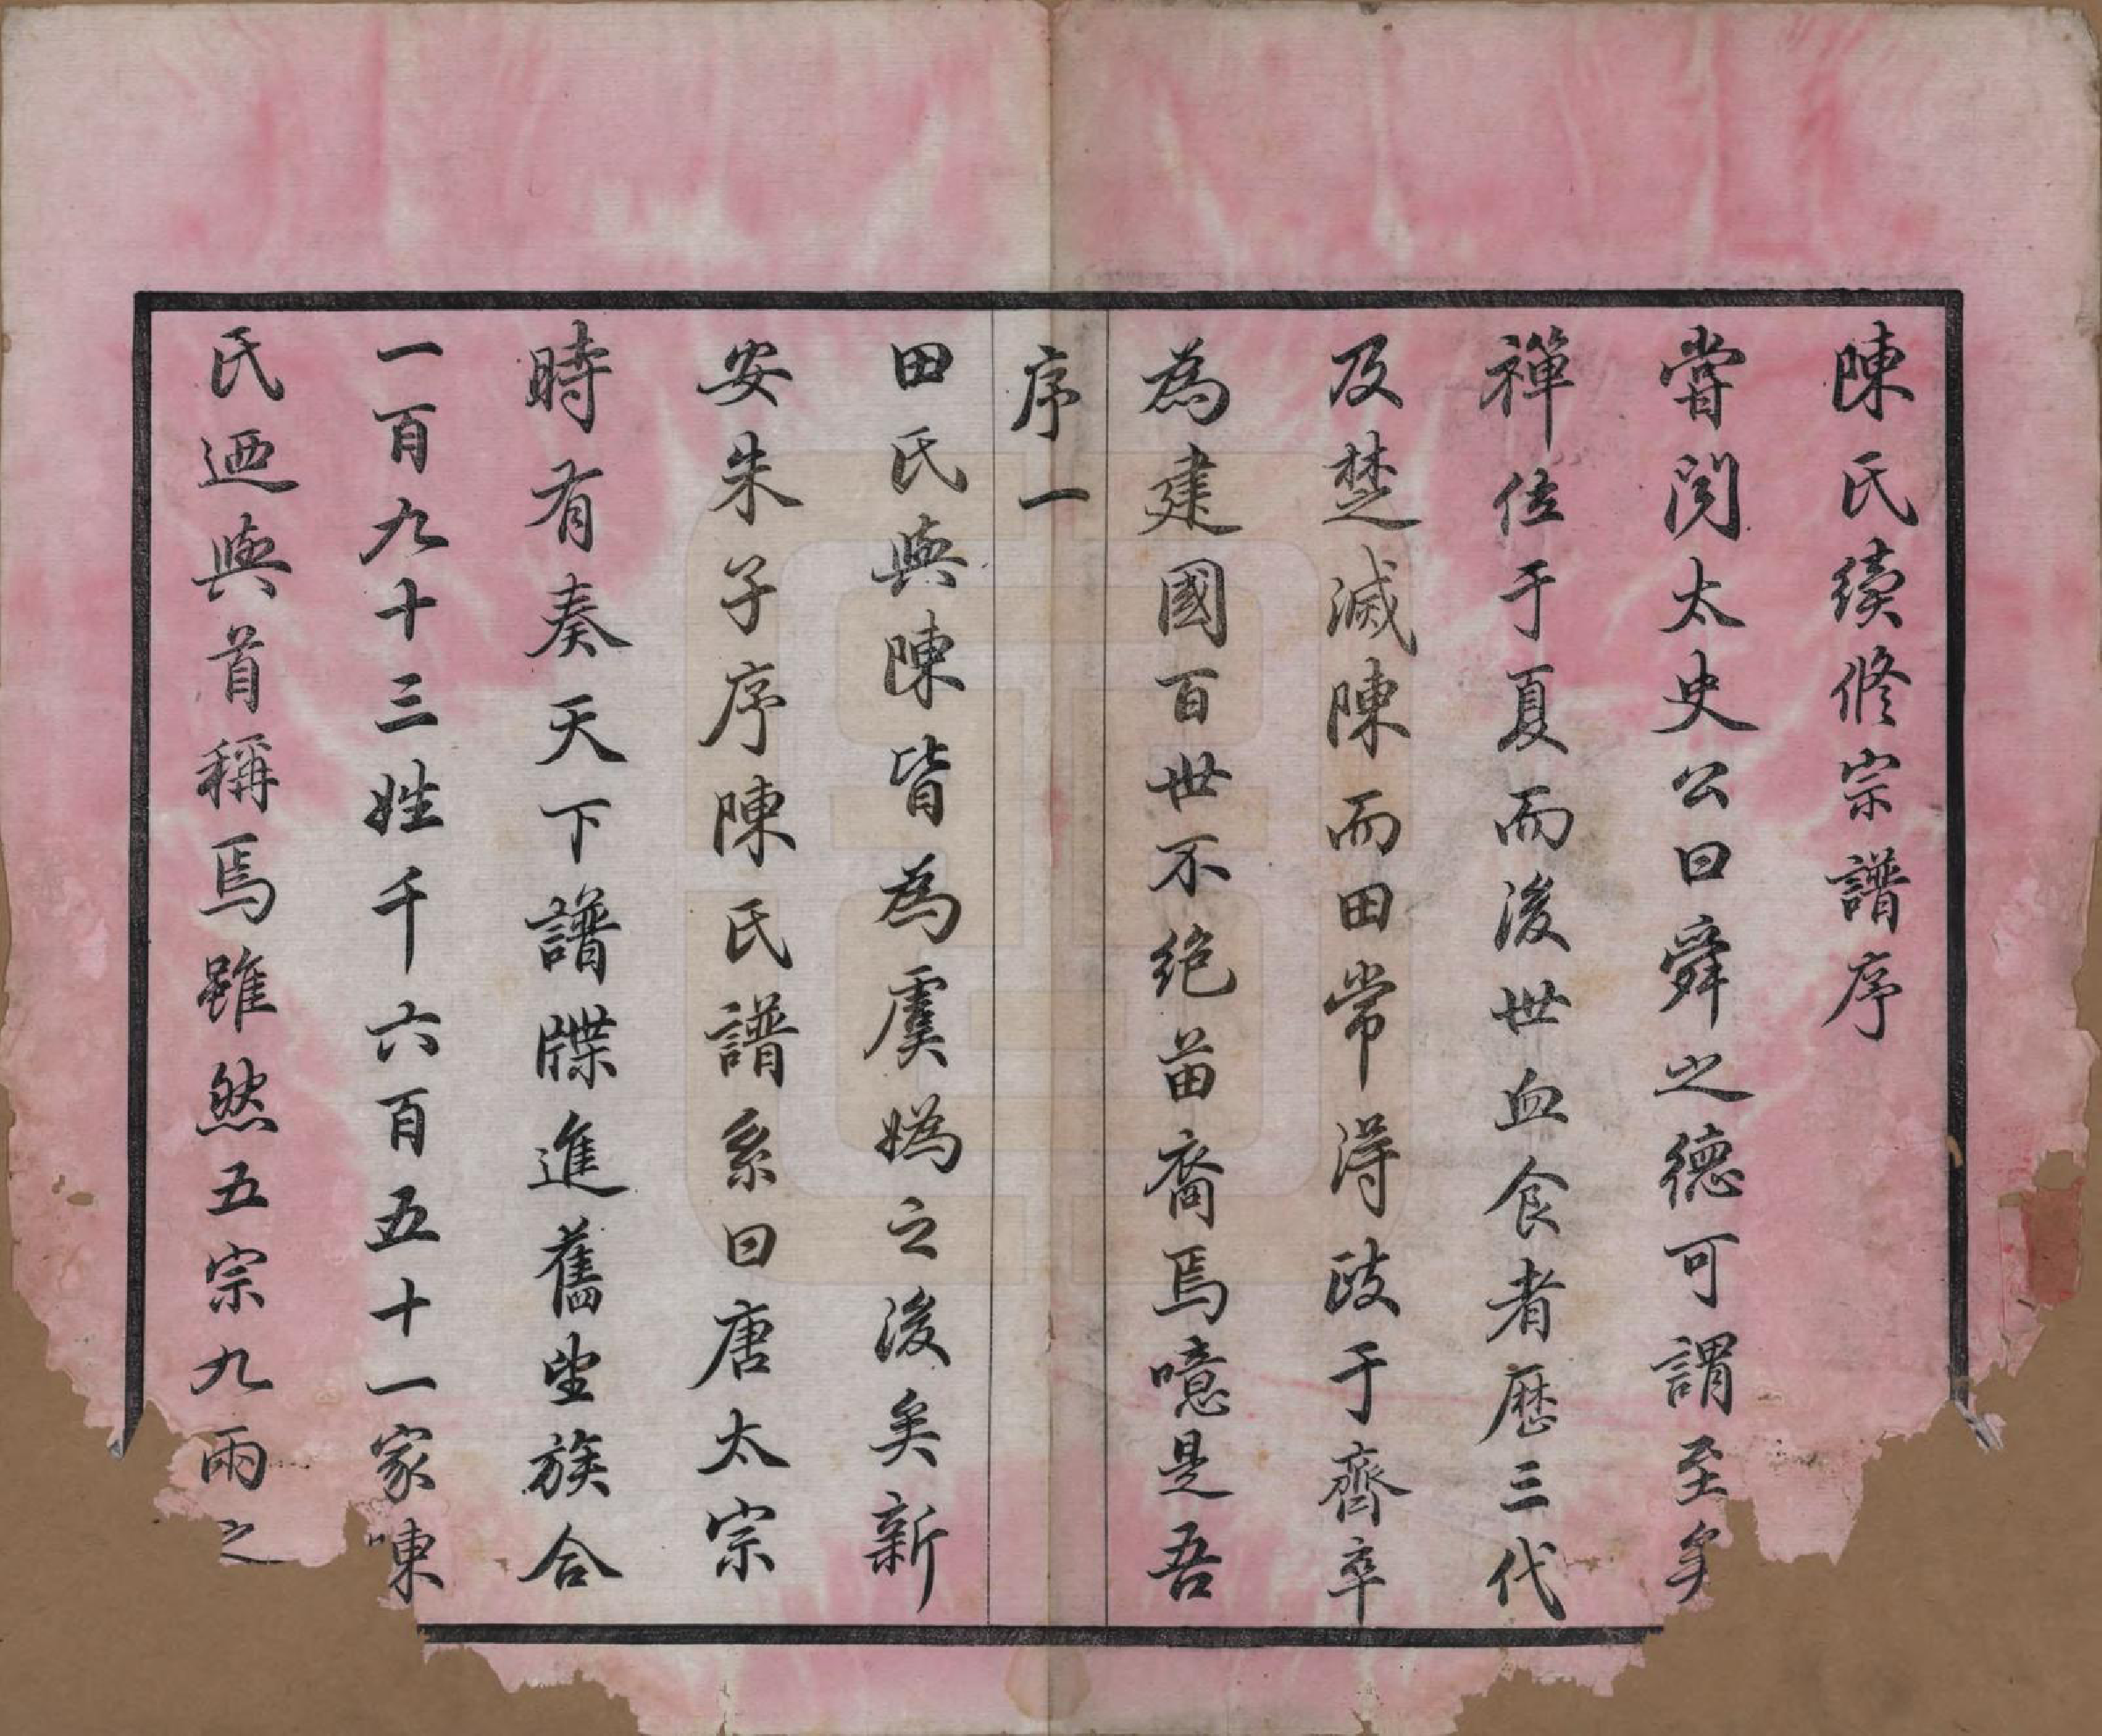 陳氏續修宗譜序
嘗閱太史公曰舜之德可謂至矣
禪位于夏而後世血食者歷三代
及楚滅陳而田常得政于齊卒
為建國百世不绝苗裔焉噫是吾
序一
田氏與陳皆為虞媯之後矣新
安朱子序陳氏譜系曰唐太宗
時有奏天下譜牒進舊望族合
一百九十三姓千六百五十一家陳
氏迺與首稱焉雖然五宗九兩之